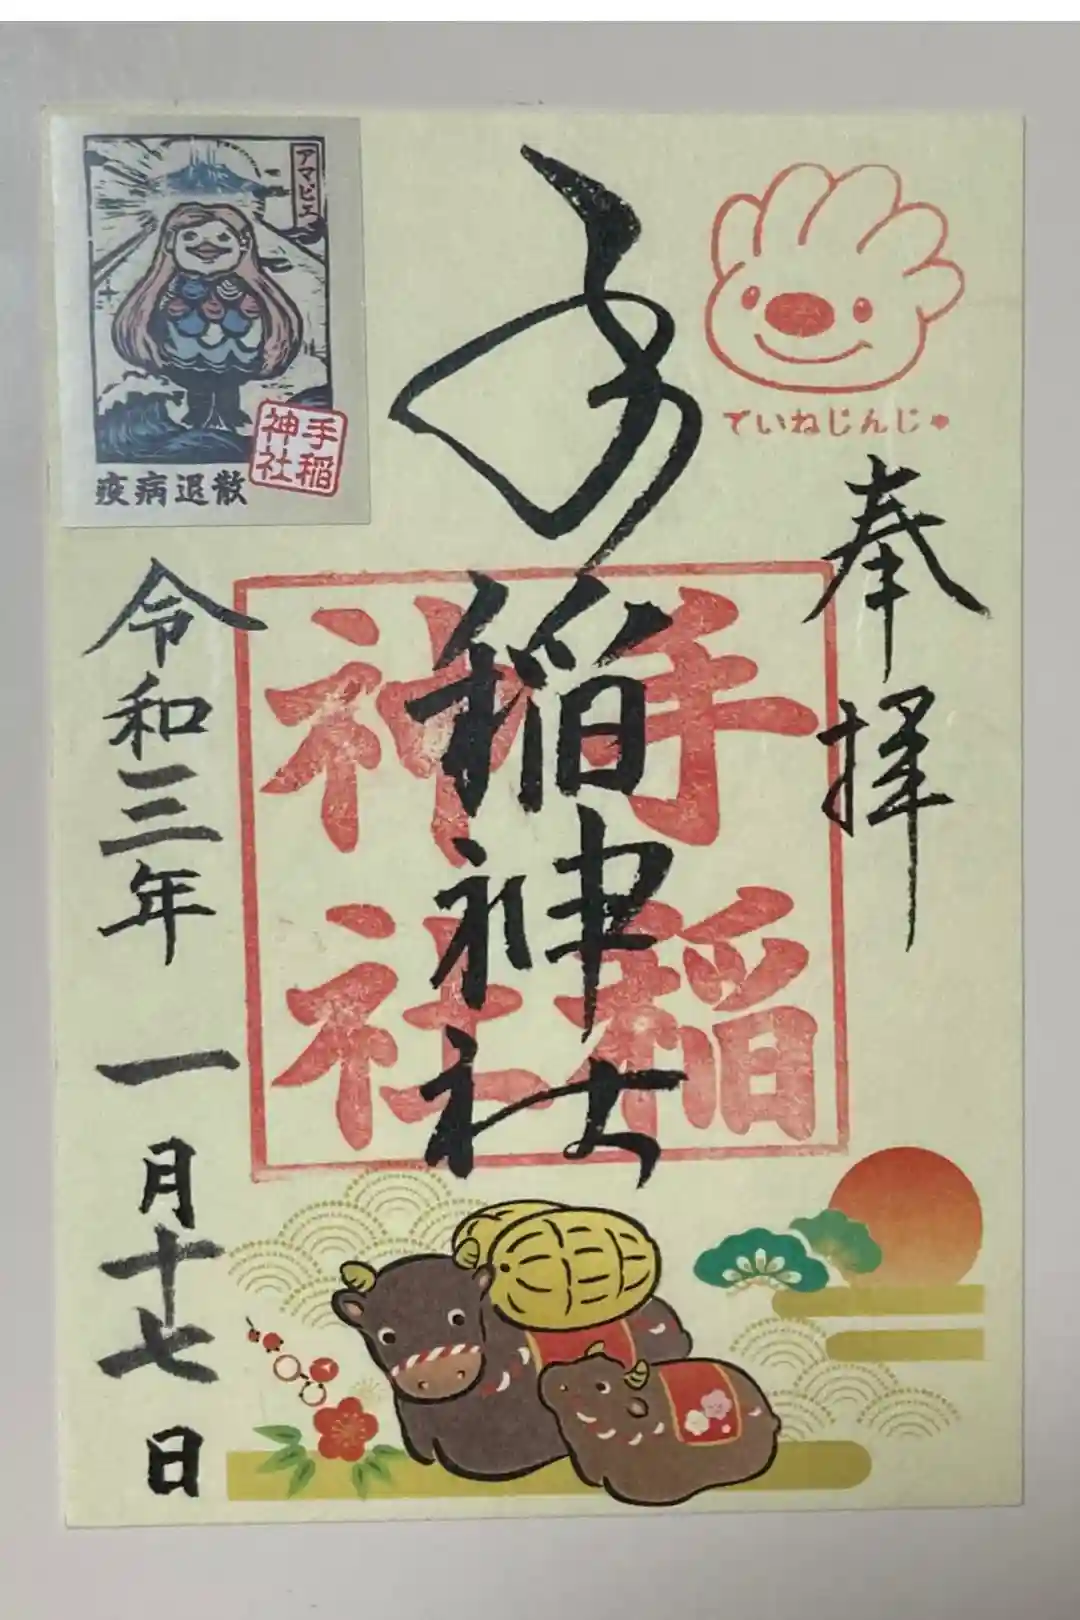 ていねじんじゃ
奉拝
手稲神社
手稲
神社
アマビエ
手稲
神社
疫病退散
令和三年 一月十七日